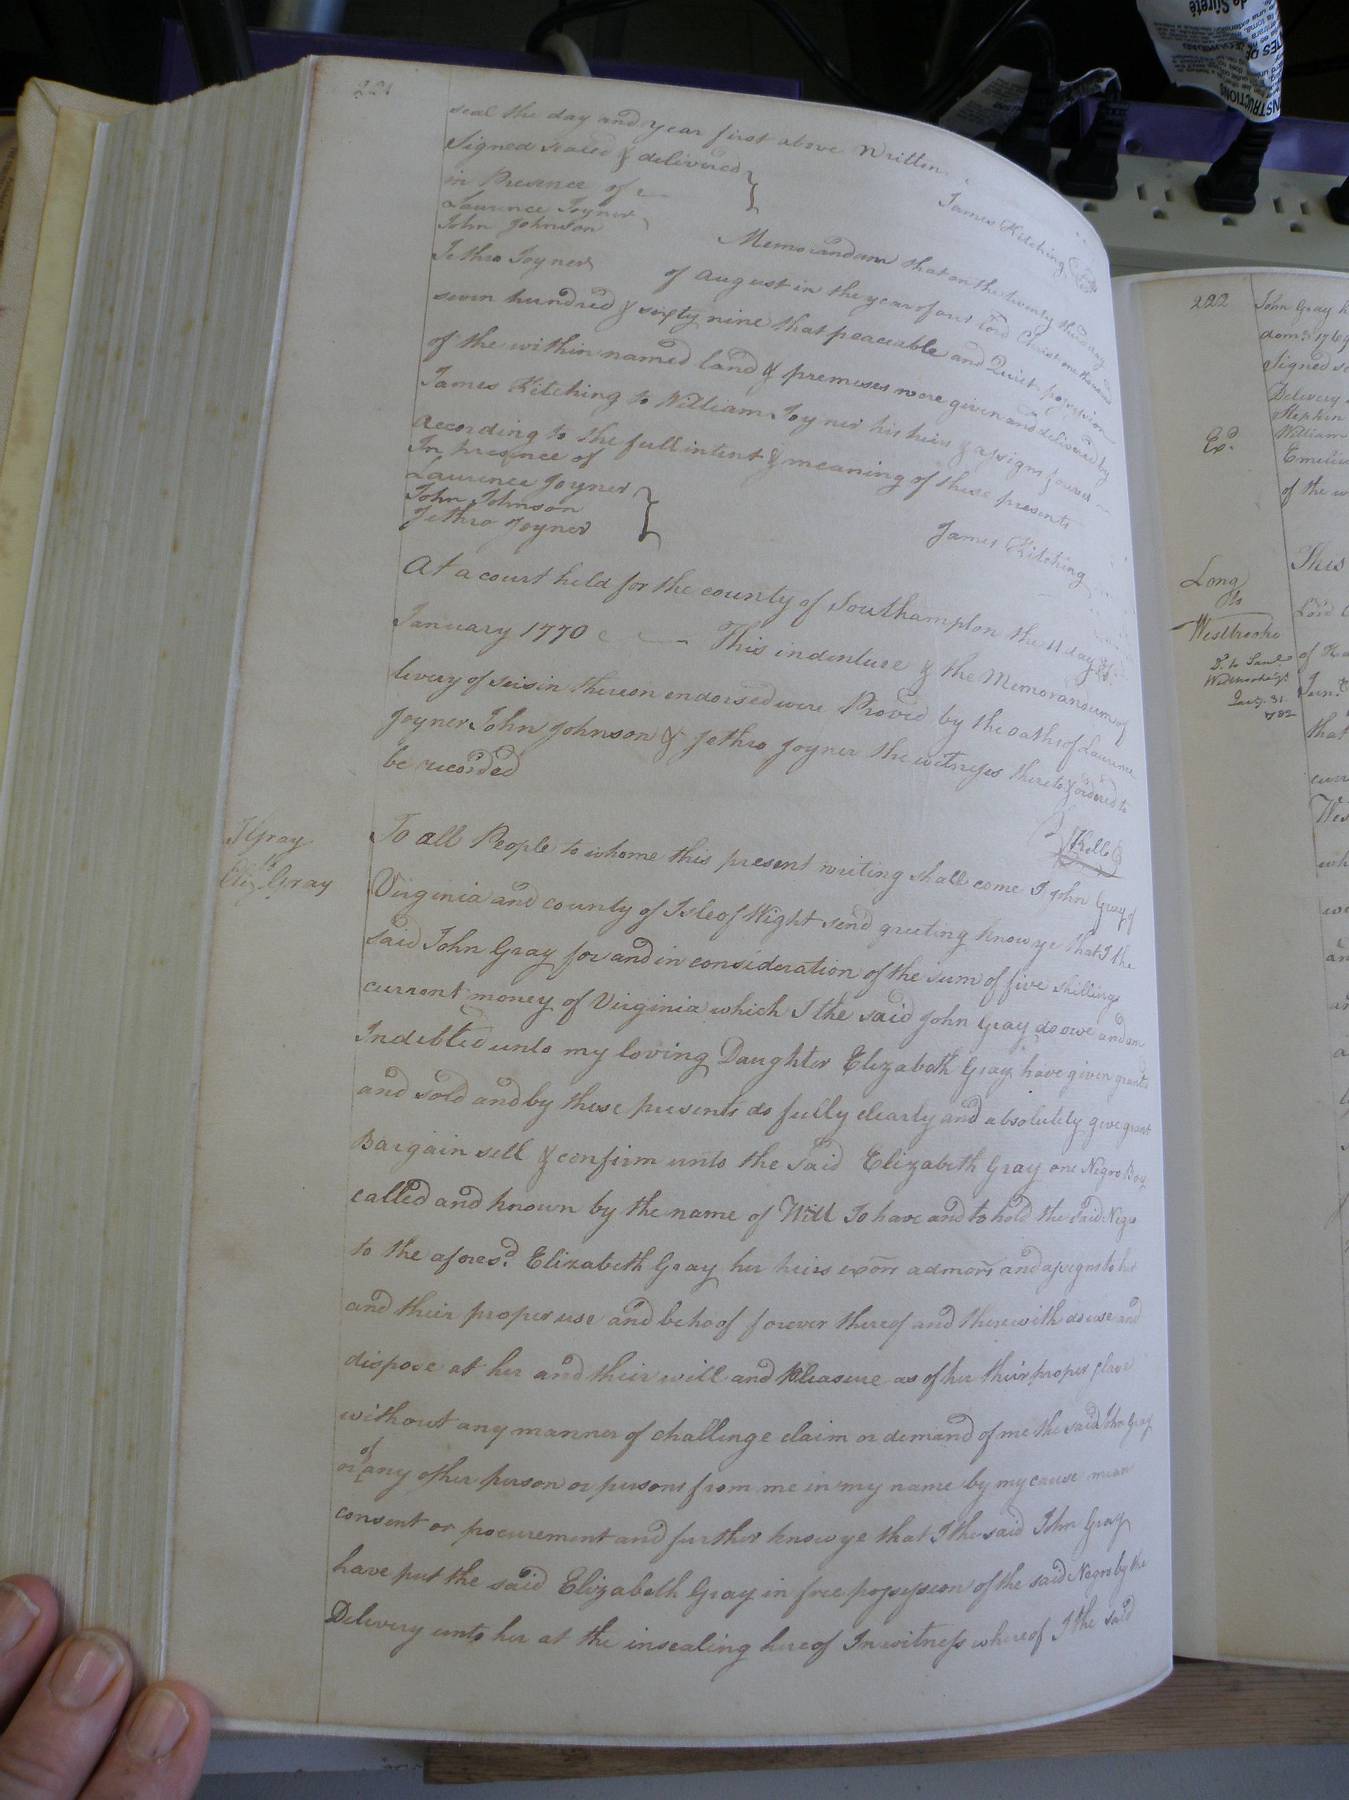 221
seal the day and year first above Written
Signed sealed & delivered
in Presence of
Laurence Joyner
John Johnson
Jethro Joyner
James Kitching
Memorandam that on the twenty third day
of August in the year of our Lord Christ one thousand
seven hundred & sixty nine that peaceable and Quiet possession
of the within named land & premises were given and delivered by
James Kitching to William Joyner his heirs & assigns forever
According to the full intent & meaning of these presents
In presence of
Laurence Joyner
John Johnson
Jethro Joyner
James Kitching
At a court held for the county of Southampton the 11 day of
January 1770 This indenture & the Memorandum of
livery of seisin thereon endorsed were Proved by the oaths of Laurence
Joyner John Johnson & Jethro Joyner the witnesses thereto & ordered to
be recorded
J Gray
to
Eliz. Gray
To all People to whome this present writing shall come I John Gray of
Virginia and county of Isle of Wight send greeting know ye that I the
said John Gray for and in consideration of the sum of five shillings
current money of Virginia which I the said John Gray do owe and am
Indebted unto my loving Daughter Elizabeth Gray have given granted
and sold and by these presents do fully clearly and absolutely give grant
Bargain sell & confirm unto the said Elizabeth Gray one Negro Boy
called and known by the name of Will To have and to hold the said Negro
to the afores.d Elizabeth Gray her heirs exors admors and assigns to her
and their proper use and behoof forever thereof and therewith do use and
dispose at her and their will and Pleasure as of her their proper slave
without any manner of challenge claim or demand of me the said John Gray
or of any other person or persons from me in my name by my cause mean
consent or procurement and further know ye that I the said John Gray
have put the said Elizabeth Gray in free possession of the said Negro by the
Delivery unto her at the insealing hereof In witness whereof I the said
222
John Gray h
dom 1769
Signed se
Delivery
Stephen
William
Ex.d
Emeliu
of the w
Long
to
Westbrooke
This
Lord C
of Ha
Jun.r
that
curr
Wes
wh
we
an